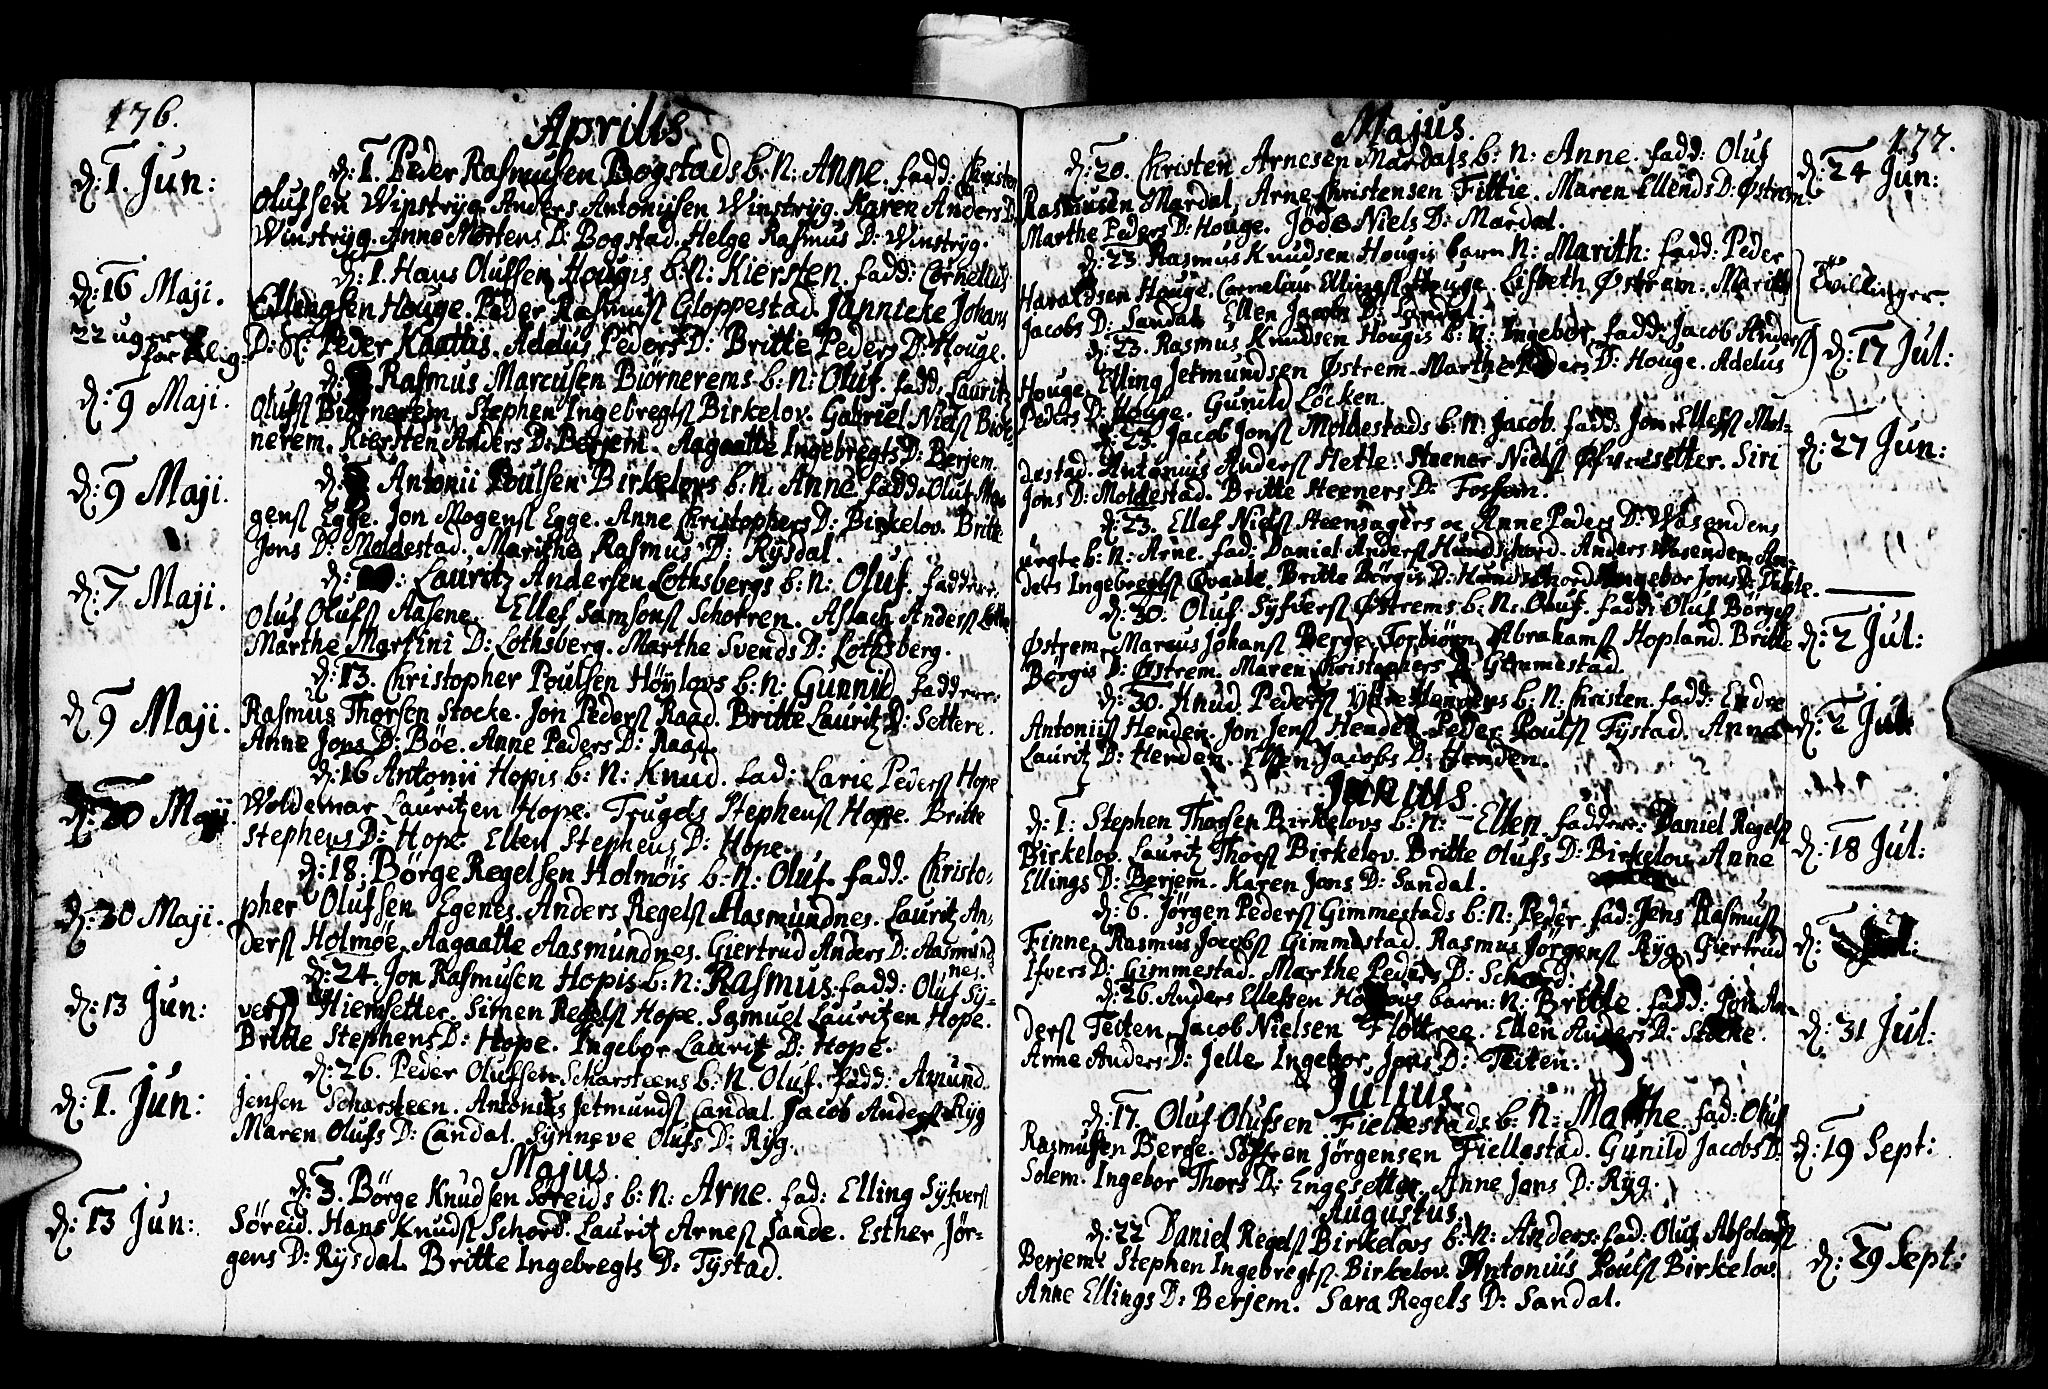 176.
Aprilis
d: 1 Jun:
d: 1 Peder Rasmusen Bogstads b: N: Anne. fadd: Christen
Olufsen Winstryg. Anders Antonijsen Winstryg. Karen Anders D:
Winstryg. Anne Mortens D: Bogstad. Helge Rasmus D: Winstryg.
d: 16 Maji.
22 uger
d: 1. Hans Olufsen Hougis b: N: Kiersten. fadd: Cornelius
Ellengsen Houge. Peder Rasmusſ Gloppestad. Jannicke Johans
D: Sl: Peder Kaattis. Adelus Peders D: Britte Peders D: Houge.
d: 9 Maji.
d: Rasmus Marcusen Biørnerems b: N: Oluf. fadd: Lauritz
Olufsſ Biørnerem. Stephen Ingebregtsſ Birkelov. Gabriel Nielsſ Biør-
nerem. Kiersten Anders D: Berjem. Aagaatte Ingebregts D: Berjem.
d: 9 Maji.
d: Antonii Poulsen Birkelovs b: N: Anne. fadd: Oluf Mo-
gensſ Egge. Jon Mogensſ Egge. Anne Christophers D: Birkelov. Britte
Jons D: Moldestad. Marithe Rasmus D: Rysdal.
d: 7 Maji.
d: Lauritz Andersen Lothsbergs b: N: Oluf. faddere.
Oluf Olufsſ Aasene. Ellef Samsonsſ Schorren. Aslach Andersſ
Marthe Martini D: Lothsberg. Marthe Svends D: Lothsberg.
d: 9 Maji.
d: 13. Christopher Poulsen Höylovs b: N: Gunnild. faddere:
Rasmus Thorsen Stocke. Jon Pedersſ Raad. Britte Lauritz D: Settere.
Anne Jons D: Böe. Anne Peders D: Raad.
d: 20 Maji.
d: 16 Antonii Hopis b: N: Knud. fad: Larie Pedersſ Hope
Woldemar Lauritzen Hope. Trugels Stephensſ Hope. Britte
Stephens D: Hope. Ellen Stephens D: Hope.
d: 30 Maji.
d: 18. Börge Regelsen Holmöis b: N: Oluf. fadd: Christo-
pher Olufsen Egenes. Anders Regelsſ Aasmundnes. Lauritz An-
dersſ Holmöe. Aagaatte Aasmundnes. Giertrud Anders D: Aasmund-
nes.
d: 13 Jun:
d: 24. Jon Rasmusen Hopis b: N: Rasmus. fadd: Oluf Sy-
versſ Hiemsetter. Simen Regelsſ Hope. Samuel Lauritzen Hope.
Britte Stephens D: Hope. Ingebor Lauritz D: Hope.
d: 1. Jun:
d: 26. Peder Olufsen Scharsteens b: N. Oluf. fadd: Amund
Jensen Scharsteen. Antonius Jetmundsſ Candal. Jacob Andersſ Ryg
Maren Olufs D: Candal. Synneve Olufs D: Ryg.
Majus
d: 13 Jun:
d: 3. Börge Knudsen Søreids b: N: Arne. fad: Elling Syfversſ
Søreid. Hans Knudsſ Schord. Lauritz Arnesſ Sande. Esther Jør-
gens D: Rysdal. Britte Ingebregts D: Tystad.
177.
Majus.
d: 20. Christen Arnesen Mardals b: N: Anne. fadd: Oluf
d: 24 Jun:
Rasmusen Mardal. Arne Christensen Fittie. Maren Ellends D: Østrem
Marthe Peders D: Houge. Jöde Niels D: Mardal.
d: 23. Rasmus Knudsen Hougis barn N: Marith: fadd: Peder
Haraldsen Houge. Cornelius Ellingsſ Houge. Lisbeth Østrem. Marith
Tvillinger.
Jacobs D: Sandal. Ellen Jacobs D: Sandal.
d: 23. Rasmus Knudsen Hougis b: N: Ingebor. fadd: Jacob Andersſ
d: 17 Jul:
Houge. Elling Jetmundsen Østrem. Marthe Peders D: Houge. Adelus
Peders D: Houge. Gunild Löcken.
d: 23. Jacob Jonsſ Moldestads b: N: Jacob. fadd: Jon Ellefsſ Mol-
d: 27 Jun:
destad. Antonius Andersſ Hetle. Steener Nielsſ Øfvresetter. Siri
Jons D: Moldestad. Britte Steeners D: Fossem.
d: 23. Ellef Nielsſ Steensagers oc Anne Peders D: Wasendens
urgte b: N: Arne. fad: Daniel Andersſ Hundschord. Anders Wasenden. An-
ders Ingebregtsſ Qvaale. Britte Börgis D: Hundschord. Ingebor Jons D:
d: 30. Oluf Syfversſ Østrems b: N: Oluf. fadd: Oluf Börgesſ
d: 2 Jul:
Østrem. Marcus Johansſ Berge. Torbiörn Abrahamsſ Hopland. Britte
Börgis D: Østrem. Maren Christophers D: Gimmestad.
d: 30. Knud Pedersſ Ytre Hendens b: N: Christen. fadd: Endre
d: 2 Jul:
Antoniisſ Henden. Jon Jensſ Henden. Peder Poulsſ Tystad. Anne
Lauritz D: Henden. Ellen Jacobs D: Henden.
Junius.
d: 1: Stephen Thorsen Birkelovs b: N: Ellen. faddere: Daniel Regelsſ
d: 18 Jul:
Birkelov. Lauritz Thorsſ Birkelov. Britte Olufs D: Birkelov. Anne
Ellings D: Berjem. Karen Jons D: Sandal.
d: 6. Jörgen Pedersſ Gimmestads b: N: Peder. fad: Jens Rasmusſ
Finne. Rasmus Jacobsſ Gimmestad. Rasmus Jörgensſ Ryg. Giertrud
Ifvers D: Gimmestad. Marthe Peders D: Schord.
d: 26. Anders Ellefsen barn: N: Britte. fadd: Jon An-
d: 31 Jul:
dersſ Teiten. Jacob Nielsen Flottree. Ellen Anders D: Stocke.
Anne Anders D: Jelle. Ingebor Jons D: Teiten.
Julius.
d: 17. Oluf Olufsen Fiellestads b: N: Marthe. fad: Oluf
d: 19 Sept:
Rasmusen Berge. Søfren Jörgensen Fiellestad. Gunild Jacobs D:
Solem. Ingebor Thors D: Engesetter. Anne Jons D: Ryg.
Augustus.
d: 22 Daniel Regelsſ Birkelovs b: N: Anders. fad: Oluf Absolonsſ
d: 29 Sept:
Berjem. Stephen Ingebregtsſ Birkelov. Antonius Poulsſ Birkelov.
Anne Ellings D: Berjem. Sara Regels D: Sandal.